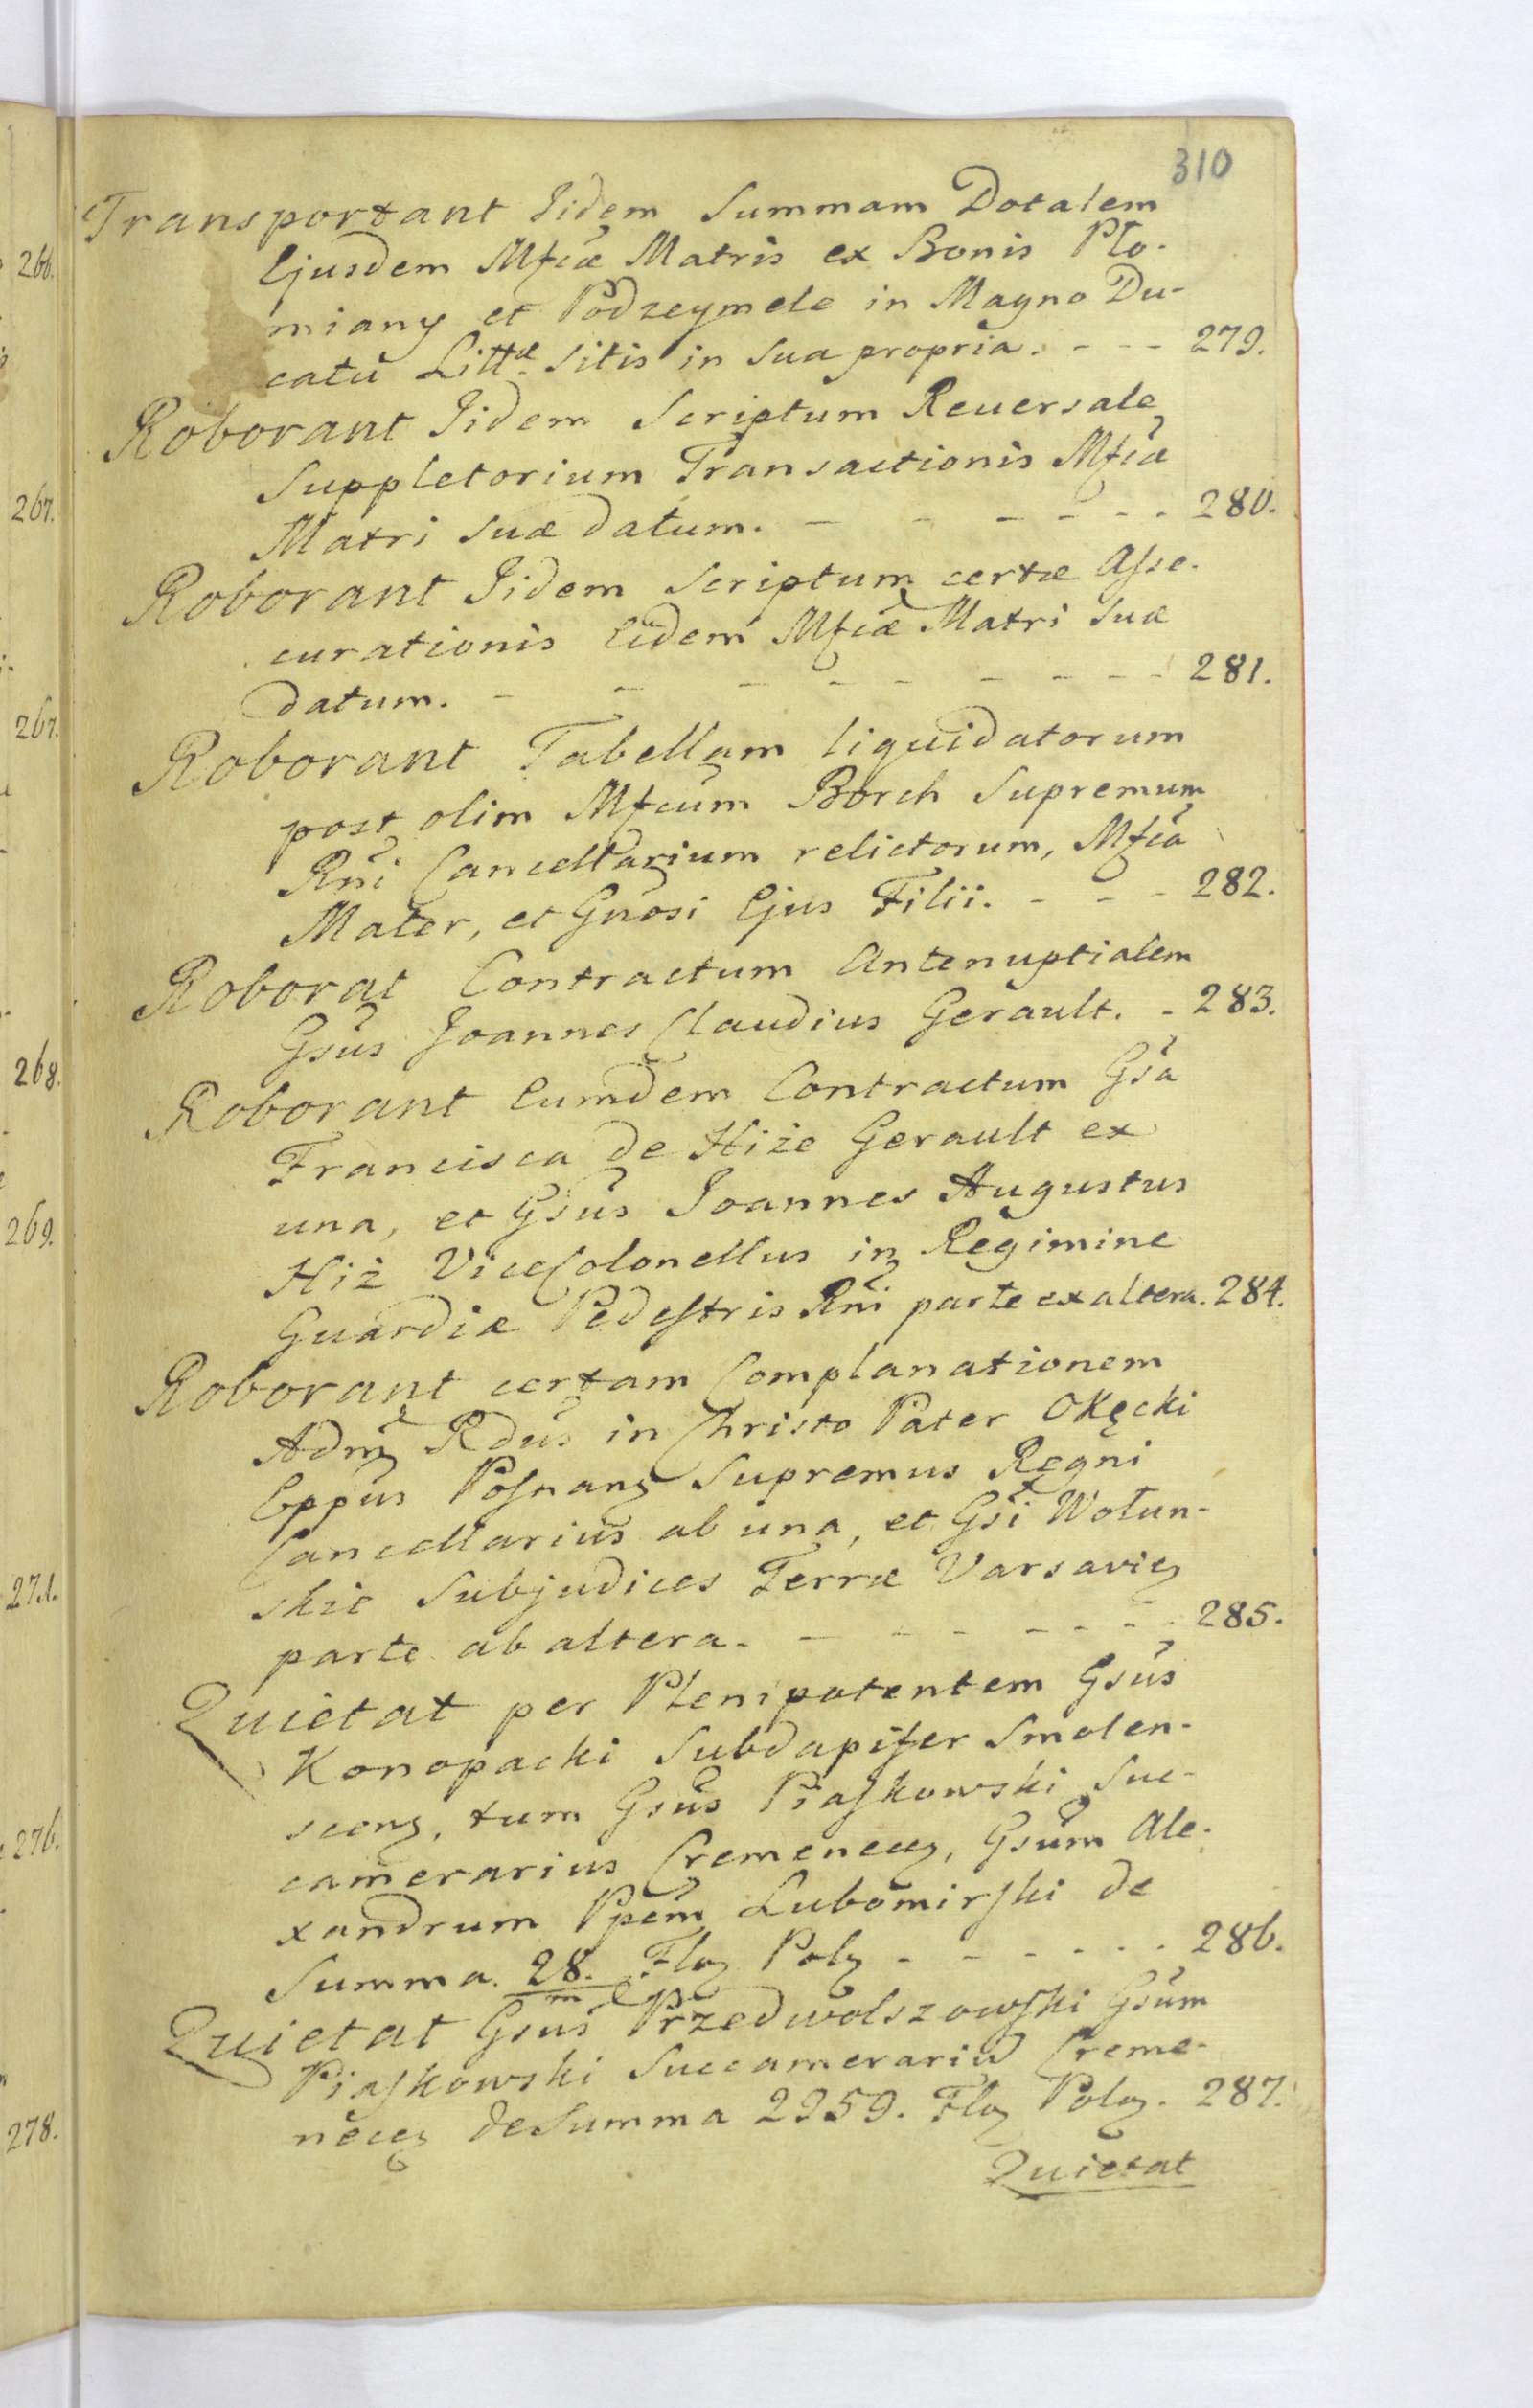 310
Transportant Iidem Summam Dotalem
Ejusdem Mfcæ Matris ex Bonis Plo-
miany et Podzeymele in Magno Du-
catu Littæ Sitis in Sua propria. - - - 279.
Roborant Iidem Scriptum Reuersale
Suppletorium Transactionis Mfcæ
Matri Suæ datum. - - - - - - 280.
Roborant Iidem Scriptum certæ Asse-
curationis Eidem Mfcæ Matri Suæ
datum. - - - - - - - - - 281.
Roborant Tabellam liquidatorum
post olim Mfcum Borch Supremum
Rni Cancellarium relictorum, Mfca
Mater, et Gnosi Ejus Filii. - - - 282.
Roborat Contractum Antenuptialem
Gsus Joannes Claudius Gerault. - 283.
Roborant Eumdem Contractum Gsa
Francisca de Hiże Gerault ex
una, et Gsus Joannes Augustus
Hiż ViceColonellus in Regimine
Guardiæ Pedestris Rni parte ex altera. 284.
Roborant certam Complanationem
Adm Rdus in Christo Pater Okęcki
Eppus Posnan Supremus Regni
Cancellarius ab una, et Gsi Wołun-
skie Subjudices Terræ Varsavien
parte ab altera. - - - - - - - 285.
Quietat per Plenipotentem Gsus
Konopacki Subdapifer Smolen-
scens, tum Gsus Piaskowski Suc-
camerarius Cremenecen, Gsum Ale-
xandrum Ppem Lubomirski de
Summa. 28. m Flo Pol - - - - - - 286.
Quietat Gsus Przedwolszowski Gsum
Piaskowski Succamerariu Creme-
necen de Summa 2959. Flo Polo. 287.
Quietat
266.
267.
267.
268.
269.
271.
276.
278.